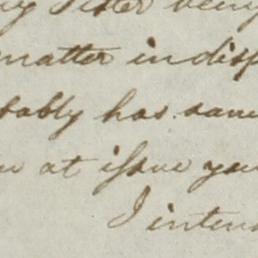 my Sister being
matter indisp
bably has same
at issue you
I inten